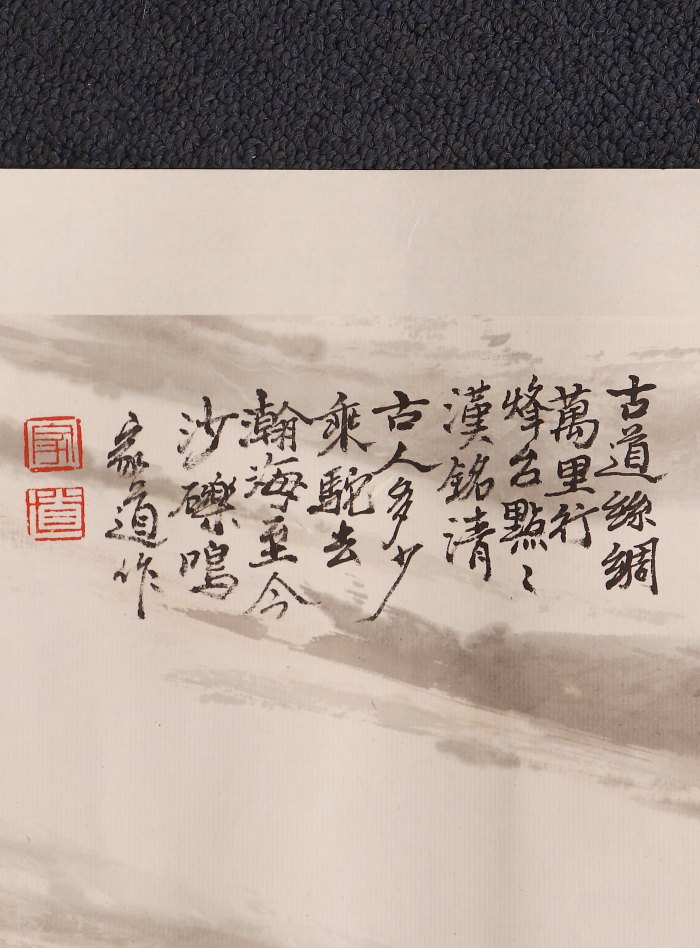 古道絲綢
萬里行
烽台點〻
漢銘清
古人多少
乘駝去
瀚海至今
沙礫鳴
家道作
家
道